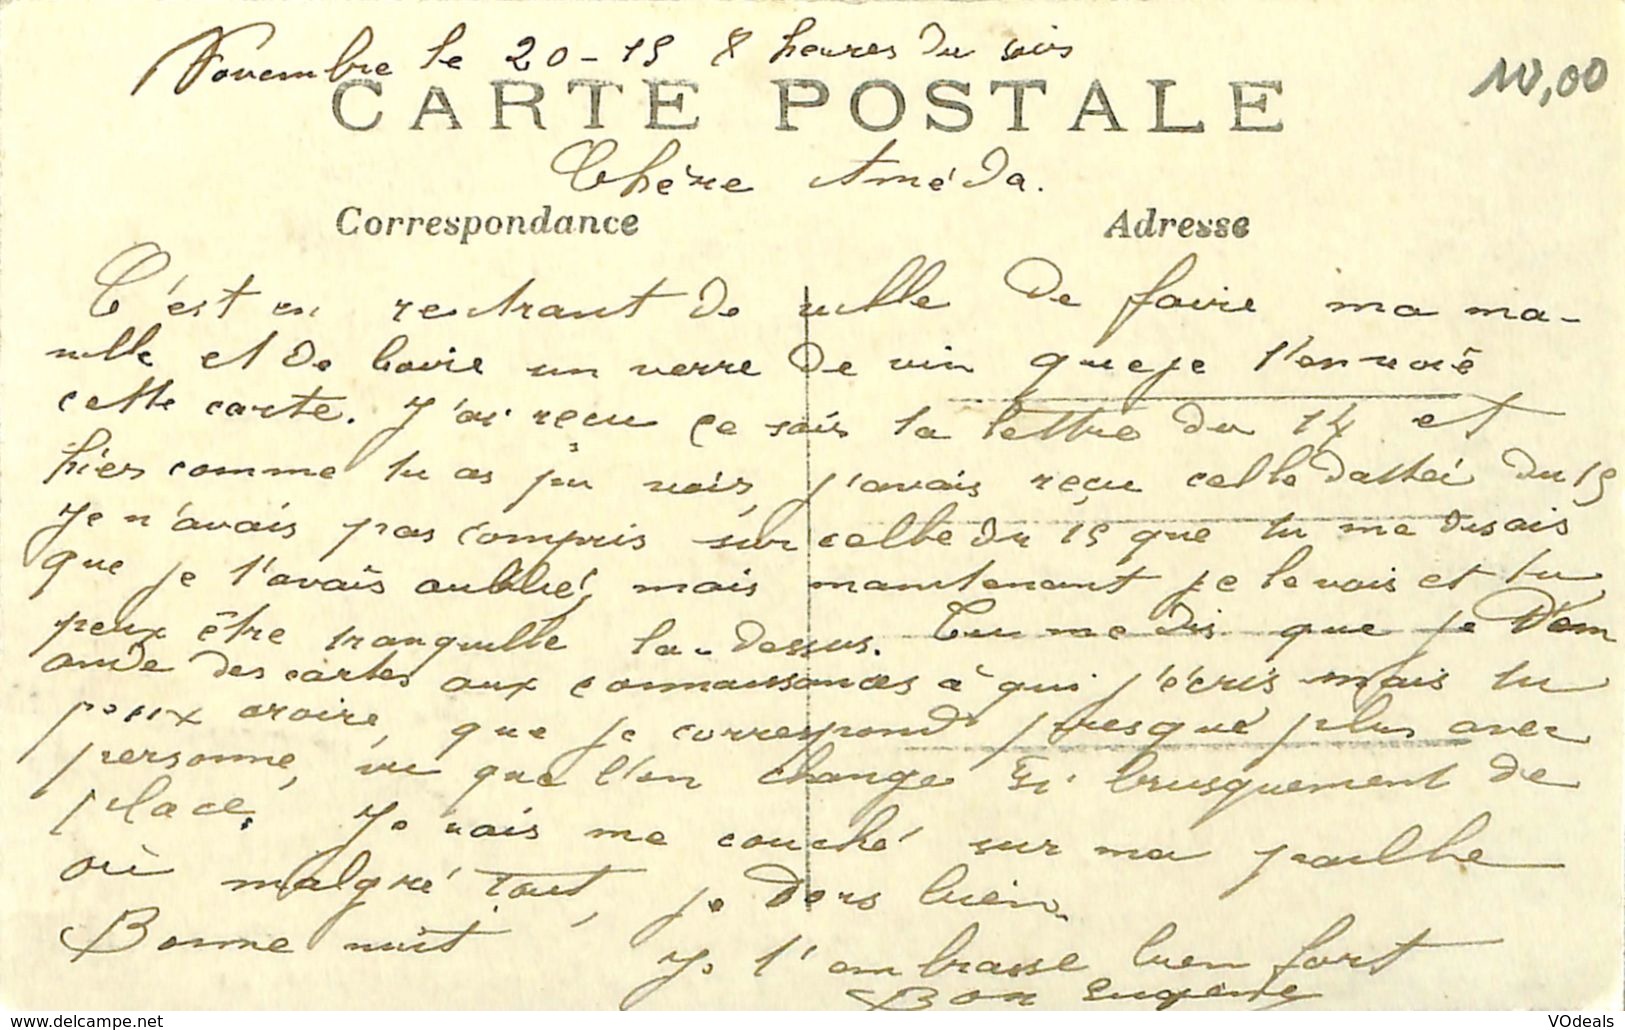 Novembre le 20-15 8 heures du soir
10,00
CARTE POSTALE
Chère Améda.
Correspondance
Adresse
C'est en rentrant de ville de faire ma ma-
nille et de boire un verre de vin que je t'envoie
cette carte. J'ai reçu ce soir ta lettre du 14 et
hier comme tu as pu voir, j'avais reçu celle du 15
Je n'avais pas compris sur celle du 15 que tu me disais
que je t'avais oublié, mais maintenant je le vois et tu
peux être tranquille la-dessus. Tu me dis que je dem
ande des cartes aux connaissances à qui j'écris mais tu
peux croire, que je correspond presque plus avec
personne, vu que l'on change si brusquement de
place. Je vais me couché sur ma paille
où malgré tout, je dors bien.
Bonne nuit
Je t'embrasse bien fort
Bon Eugène
VOdeals
www.delcampe.net